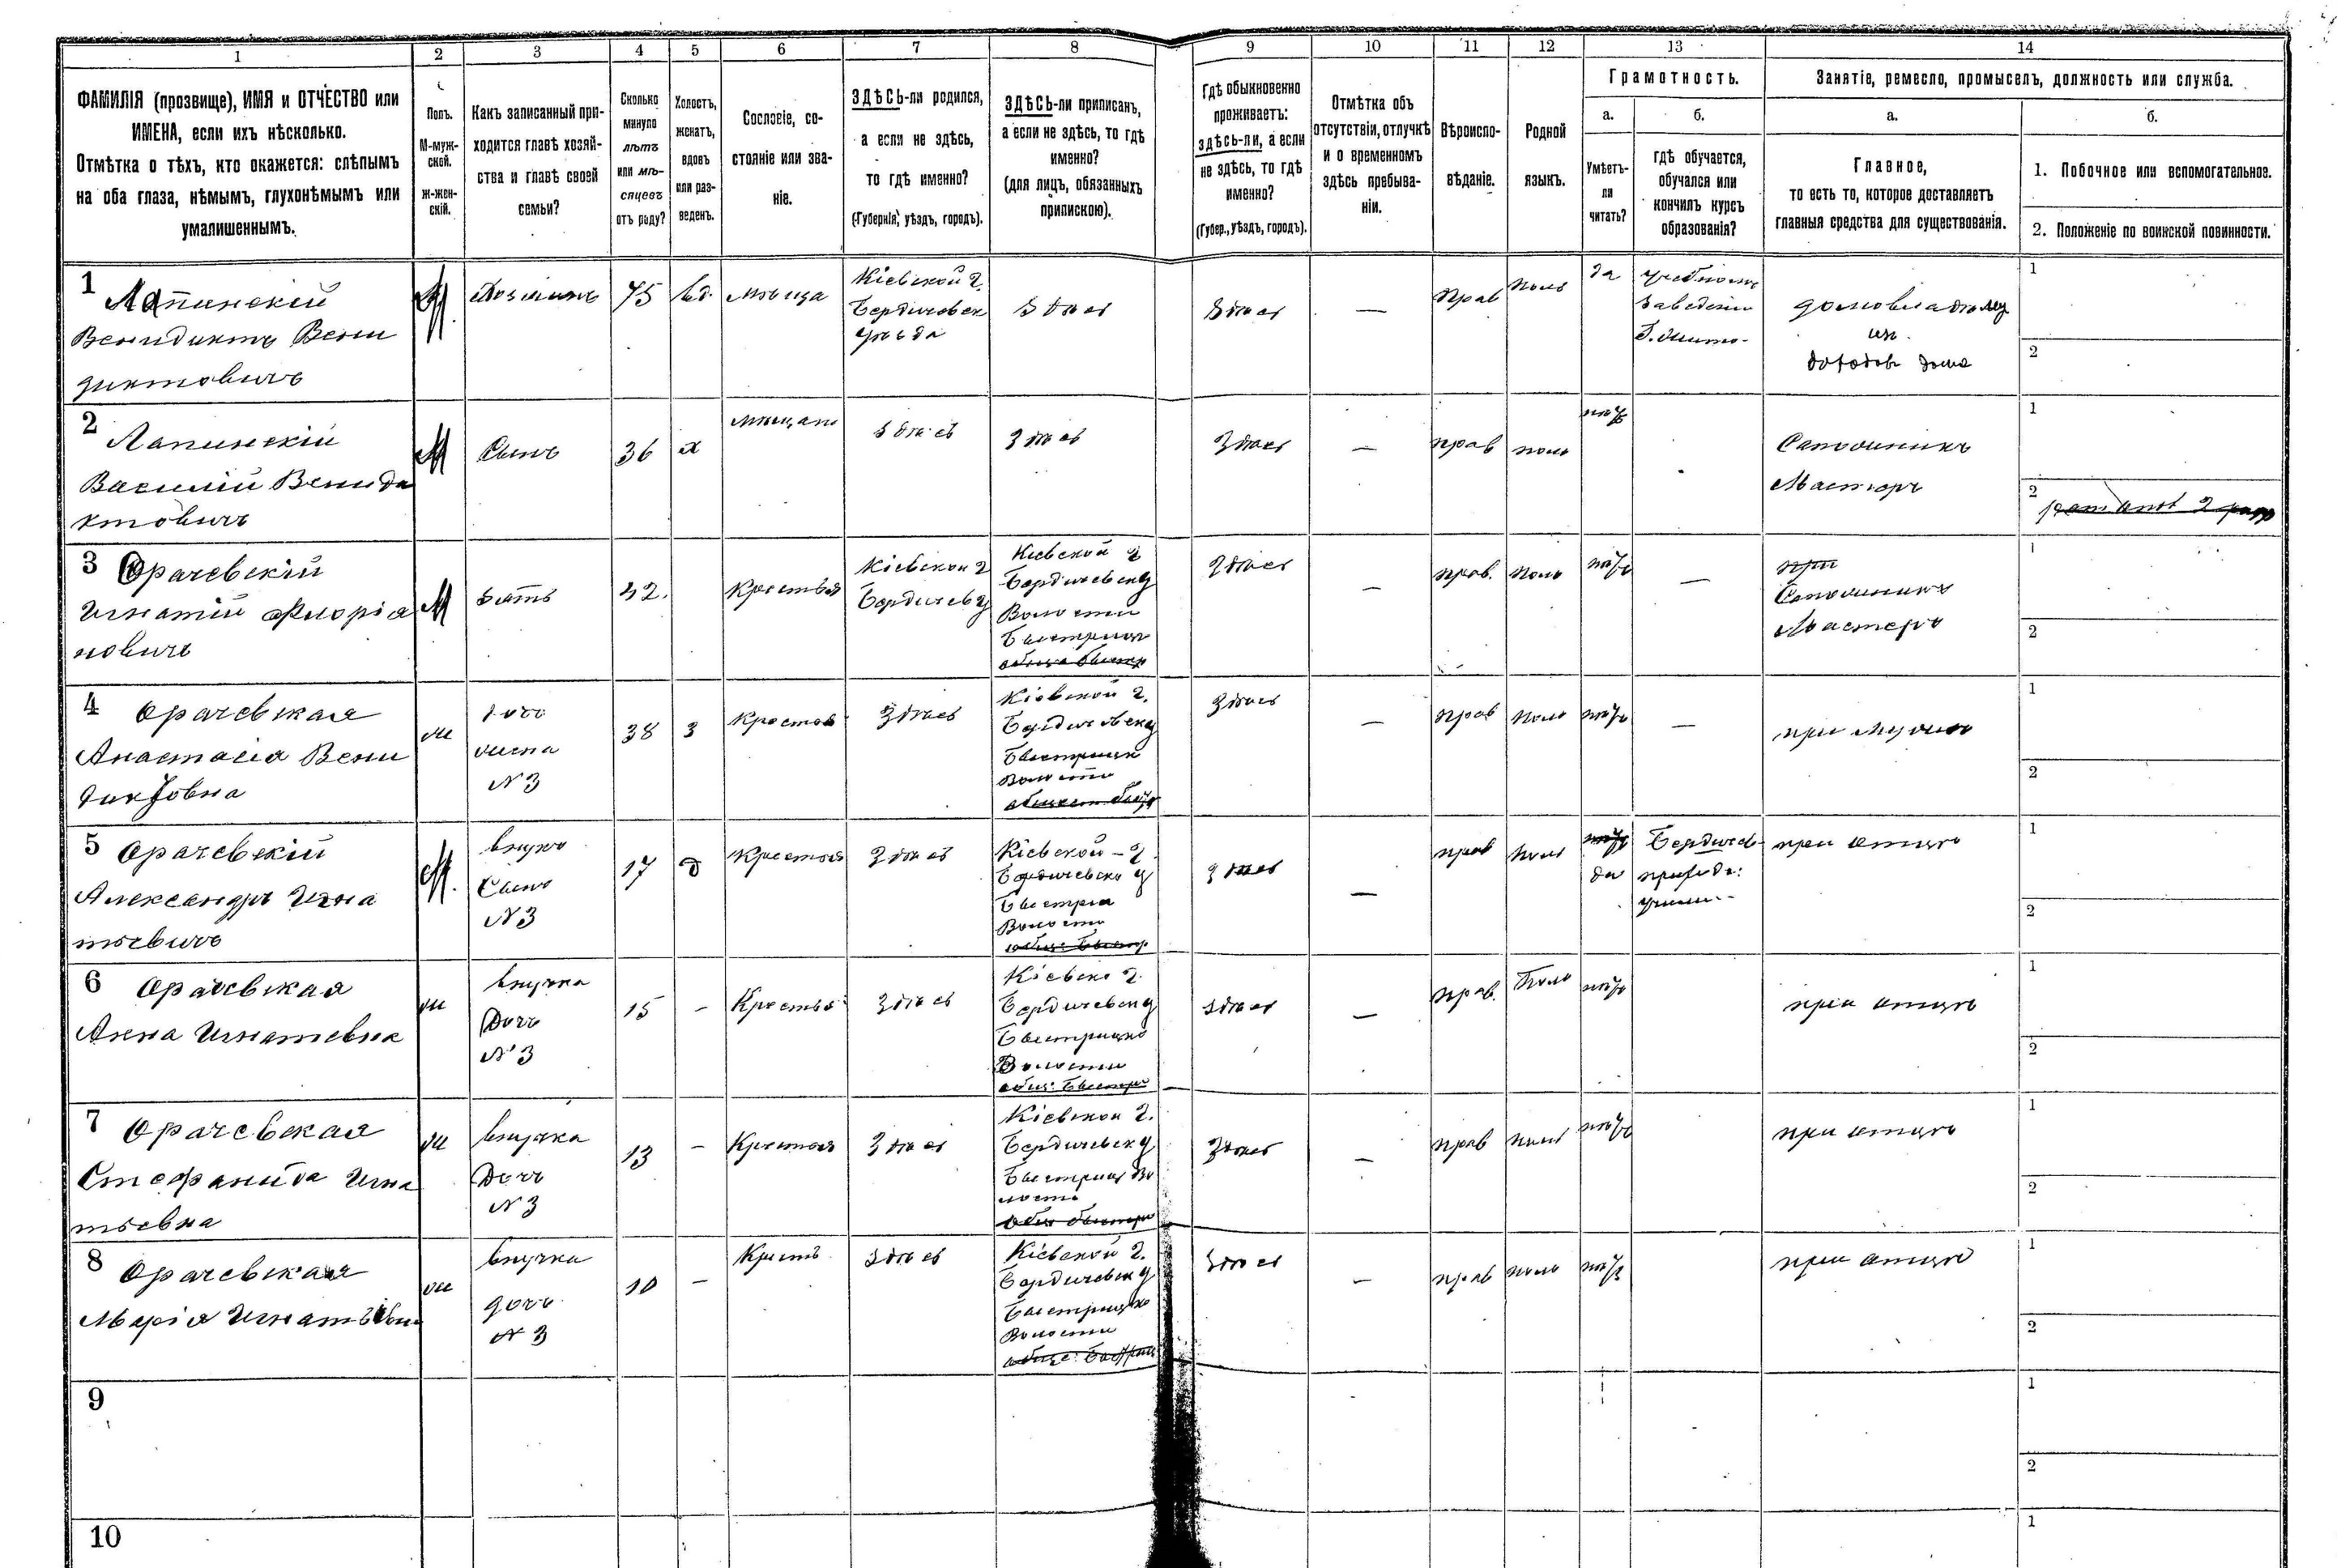 1 2 3 4 5 6 7 8 9 10 11 12 13 14
ФАМИЛІЯ (прозвище), ИМЯ и ОТЧЕСТВО или
ИМЕНА, если ихъ нѣсколько.
Отмѣтка о тѣхъ, кто окажется: слѣпымъ
на оба глаза, нѣмымъ, глухонѣмымъ или
умалишеннымъ.
Полъ.
М-муж-
ской.
ж-жен-
скій.
Какъ записанный при-
ходится главѣ хозяй-
ства и главѣ своей
семьи?
Сколько
минуло
лѣтъ
или мѣ-
сяцевъ
отъ роду?
Холостъ,
женатъ,
вдовъ
или раз-
веденъ.
Сословіе, со-
стояніе или зва-
ніе.
ЗДѢСЬ-ли родился,
а если не здѣсь,
то гдѣ именно?
(Губернія, уѣздъ, городъ).
ЗДѢСЬ-ли приписанъ,
а если не здѣсь, то гдѣ
именно?
(для лицъ, обязанныхъ
припискою).
Гдѣ обыкновенно
проживаетъ:
здѣсь-ли, а если
не здѣсь, то гдѣ
именно?
(Губер., уѣздъ, городъ).
Отмѣтка объ
отсутствіи, отлучкѣ
и о временномъ
здѣсь пребыва-
ніи.
Вѣроиспо-
вѣданіе.
Родной
языкъ.
Грамотность.
а.
Умѣетъ-
ли
читать?
б.
гдѣ обучается,
обучался или
кончилъ курсъ
образованія?
Занятіе, ремесло, промыселъ, должность или служба.
а.
Главное,
то есть то, которое доставляетъ
главныя средства для существованія.
б.
1. Побочное или вспомогательное.
2. Положеніе по воинской повинности.
1 Лапинскій
Венидиктъ Вени
диктовичъ
М
Хозяинъ
75
вд.
мѣща
Кіевской г.
Бердичовск
уѣзда
здѣсь
здѣсь
—
прав
поль
да
учебномъ
заведеніи
домовладелец
доходов дома
1
2
2 Лапинскій
Василій Вениди
ктовичъ
М
Сынъ
36
х
мѣщан
здѣсь
здѣсь
здѣсь
—
прав
поль
нѣт
Сапожникъ
Мастеръ
1
2
3 Орачевскій
Игнатій Флоріа
новичъ
М
зять
42.
крестья
Кіевской г
Бердичев у
Кіевской г
Бердичевск у
Волости
Быстрицк
здѣсь
—
прав.
поль
нѣтъ
—
при
Сапожникъ
Мастеръ
1
2
4 Орачевская
Анастасія Вени
диктовна
ж
дочь
жена
№ 3
38
з
крестья
здѣсь
Кіевской г.
Бердичевск у
Быстрицк
Волости
здѣсь
—
прав
поль
нѣтъ
—
при мужѣ
1
2
5 Орачевскій
Александръ Игна
тьевичъ
М.
внукъ
Сынъ
№ 3
17
крестья
здѣсь
Кіевской - г.
Бердичевск у
Быстриц
Волости
здѣсь
—
прав
поль
да
Бердичев
приходс:
учили-
при отцѣ
1
2
6 Орачевская
Анна Игнатевна
ж
внучка
Дочь
№ 3
15
—
Крестья
здѣсь
Кіевско г.
Бердичевск у
Быстрицко
Волости
здѣсь
—
прав.
Поль
нѣтъ
при отцѣ
1
2
7 Орачевская
Стефанида Игна
тьевна
ж
внучка
Дочь
№ 3
13
—
Крестья
здѣсь
Кіевской г.
Бердичевск у
Быстрицк Во
лости
здѣсь
—
прав
поль
нѣтъ
при отцѣ
1
2
8 Орачевская
Марія Игнатьевн
ж
внучка
дочь
№ 3
10
—
Крестъ
здѣсь
Кіевской г.
Бердичевск у
Быстрицко
Волости
здѣсь
—
прав
поль
нѣтъ
при отцѣ
1
2
9
1
2
10
1